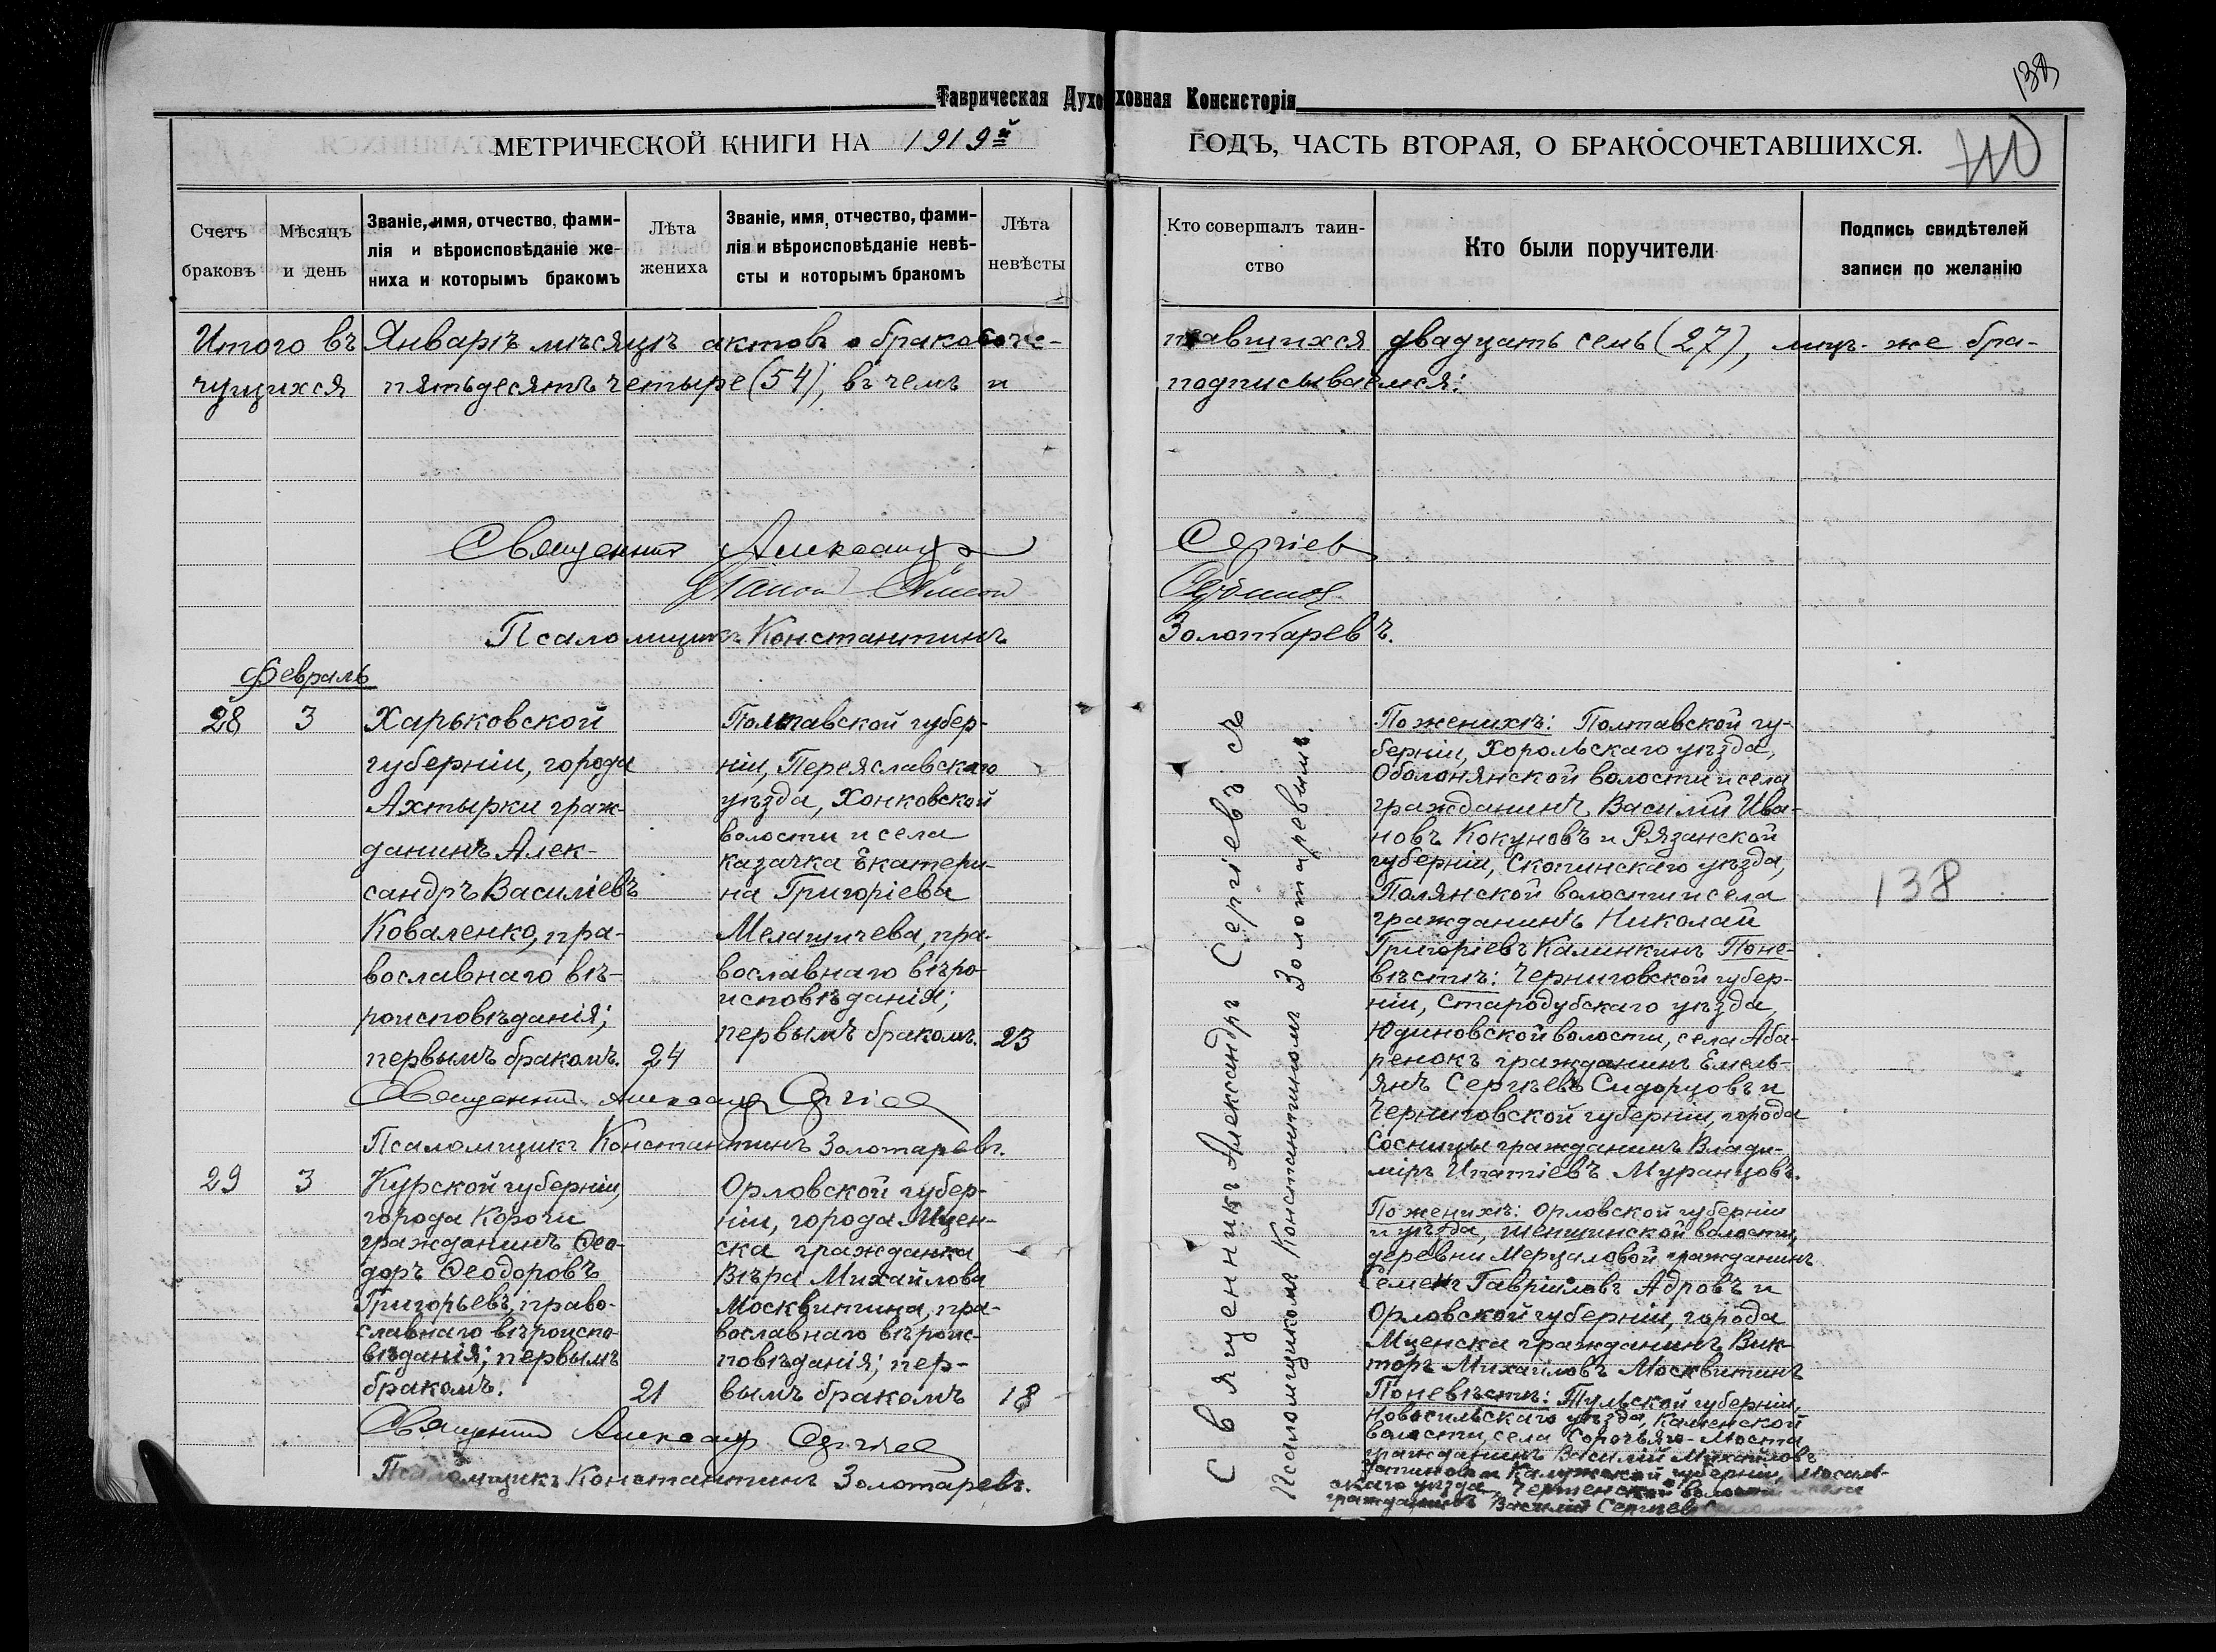 138
Таврическая Духовная Консисторія
МЕТРИЧЕСКОЙ КНИГИ НА 1919й
ГОДЪ, ЧАСТЬ ВТОРАЯ, О БРАКОСОЧЕТАВШИХСЯ.
Счетъ браковъ
Мѣсяцъ и день
Званіе, имя, отчество, фами-
лія и вѣроисповѣданіе же-
ниха и которымъ бракомъ
Лѣта жениха
Званіе, имя, отчество, фами-
лія и вѣроисповѣданіе невѣ-
сты и которымъ бракомъ
Лѣта невѣсты
Кто совершалъ таин-
ство
Кто были поручители
Подпись свидѣтелей
записи по желанію
Итого въ Январѣ мѣсяцѣ актовъ о бракосоче-
тавшихся двадцать семь (27), лицъ же бра-
чущихся пятьдесятъ четыре (54), въ чемъ и
подписываемся:
Священникъ Александръ Сергіевъ
Псаломщикъ Константинъ Золотаревъ.
Февраль
28
3
Харьковской
губерніи, города
Ахтырки граж-
данинъ Алек-
сандръ Василіевъ
Коваленко, пра-
вославнаго вѣ-
роисповѣданія;
первымъ бракомъ.
24
Полтавской губер-
ніи, Переяславскаго
уѣзда, Хонковской
волости и села
казачка Екатери-
на Григоріева
Мелащичева, пра-
вославнаго вѣро-
исповѣданія;
первымъ бракомъ.
23
Священникъ Александръ Сергіевъ
Псаломщикъ Константинъ Золотаревъ.
Священникъ Александръ Сергіевъ съ
Псаломщикомъ Константиномъ Золотаревымъ.
По женихѣ: Полтавской гу-
берніи, Хорольскаго уѣзда,
Оболонянской волости и села
гражданинъ Василій Ива-
новъ Кокуновъ и Рязанской
губерніи, Скопинскаго уѣзда,
Полянской волости и села
гражданинъ Николай
Григоріевъ Калинкинъ По не-
вѣстѣ: Черниговской губер-
ніи, Стародубскаго уѣзда,
Юдиновской волости, села Аба-
ренокъ гражданинъ Емель-
янъ Сергѣевъ Сидорцовъ и
Черниговской губерніи, города
Сосницы гражданинъ Влади-
міръ Ипатіевъ Муранцовъ.
138
29
3
Курской губерніи,
города Корочи
гражданинъ Ѳео-
доръ Ѳеодоровъ
Григорьевъ, право-
славнаго вѣроиспо-
вѣданія; первымъ
бракомъ.
21
Орловской губер-
ніи, города Мцен-
ска гражданка
Вѣра Михайлова
Москвитина, пра-
вославнаго вѣроис-
повѣданія; пер-
вымъ бракомъ
18
Священникъ Александръ Сергіевъ
Псаломщикъ Константинъ Золотаревъ.
По женихѣ: Орловской губерніи
и уѣзда, Шеншинской волости,
деревни Мерцаловой гражданинъ
Семенъ Гавріиловъ Адровъ и
Орловской губерніи, города
Мценска гражданинъ Вик-
торъ Михайловъ Москвитинъ
По невѣстѣ: Тульской губерніи,
Новосильскаго уѣзда, Каменской
волости, села Сорочьяго-Моста
гражданинъ Василій Михайловъ
и Калужской губерніи, Мосаль-
скаго уѣзда, волости
гражданинъ Василій Сергѣевъ